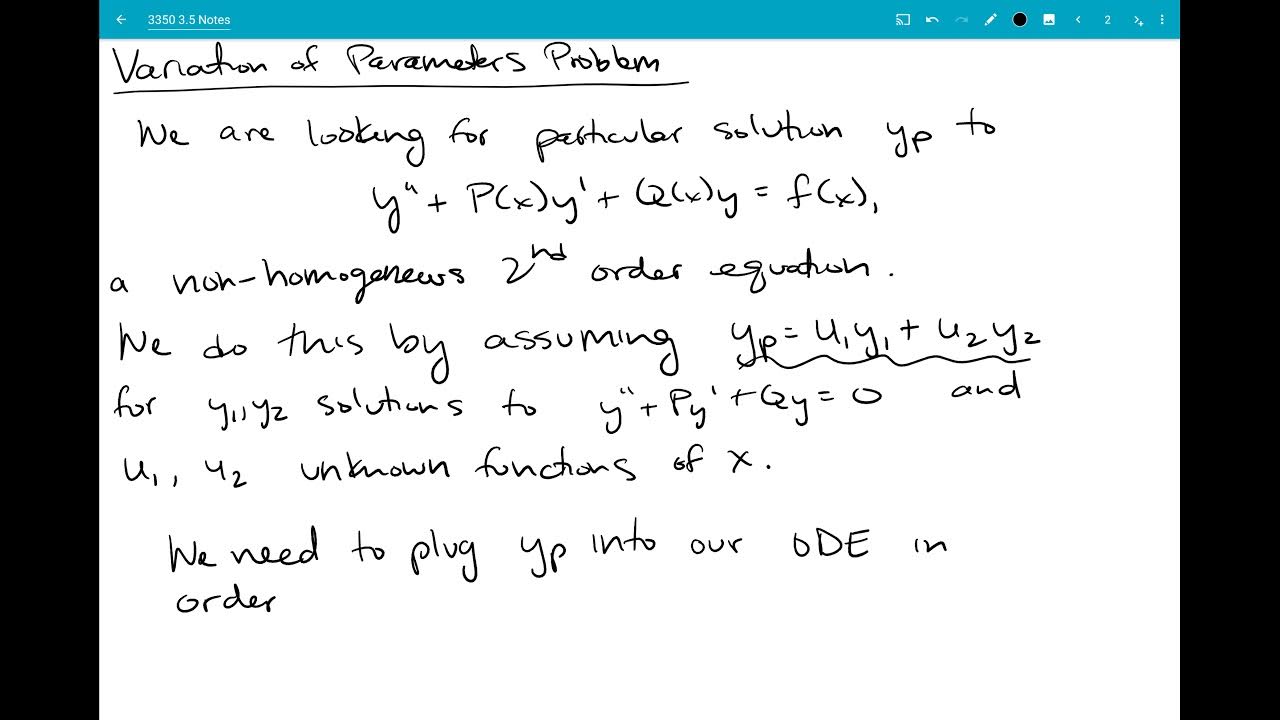 3350 3.5 Notes
2
Variation of Parameters Problem
We are looking for particular solution yp to
y" + P(x)y' + Q(x)y = f(x),
a non-homogeneous 2nd order equation.
We do this by assuming yp = u1y1 + u2y2
for y1, y2 solutions to y" + Py' + Qy = 0 and
u1, u2 unknown functions of x.
We need to plug yp into our ODE in
order